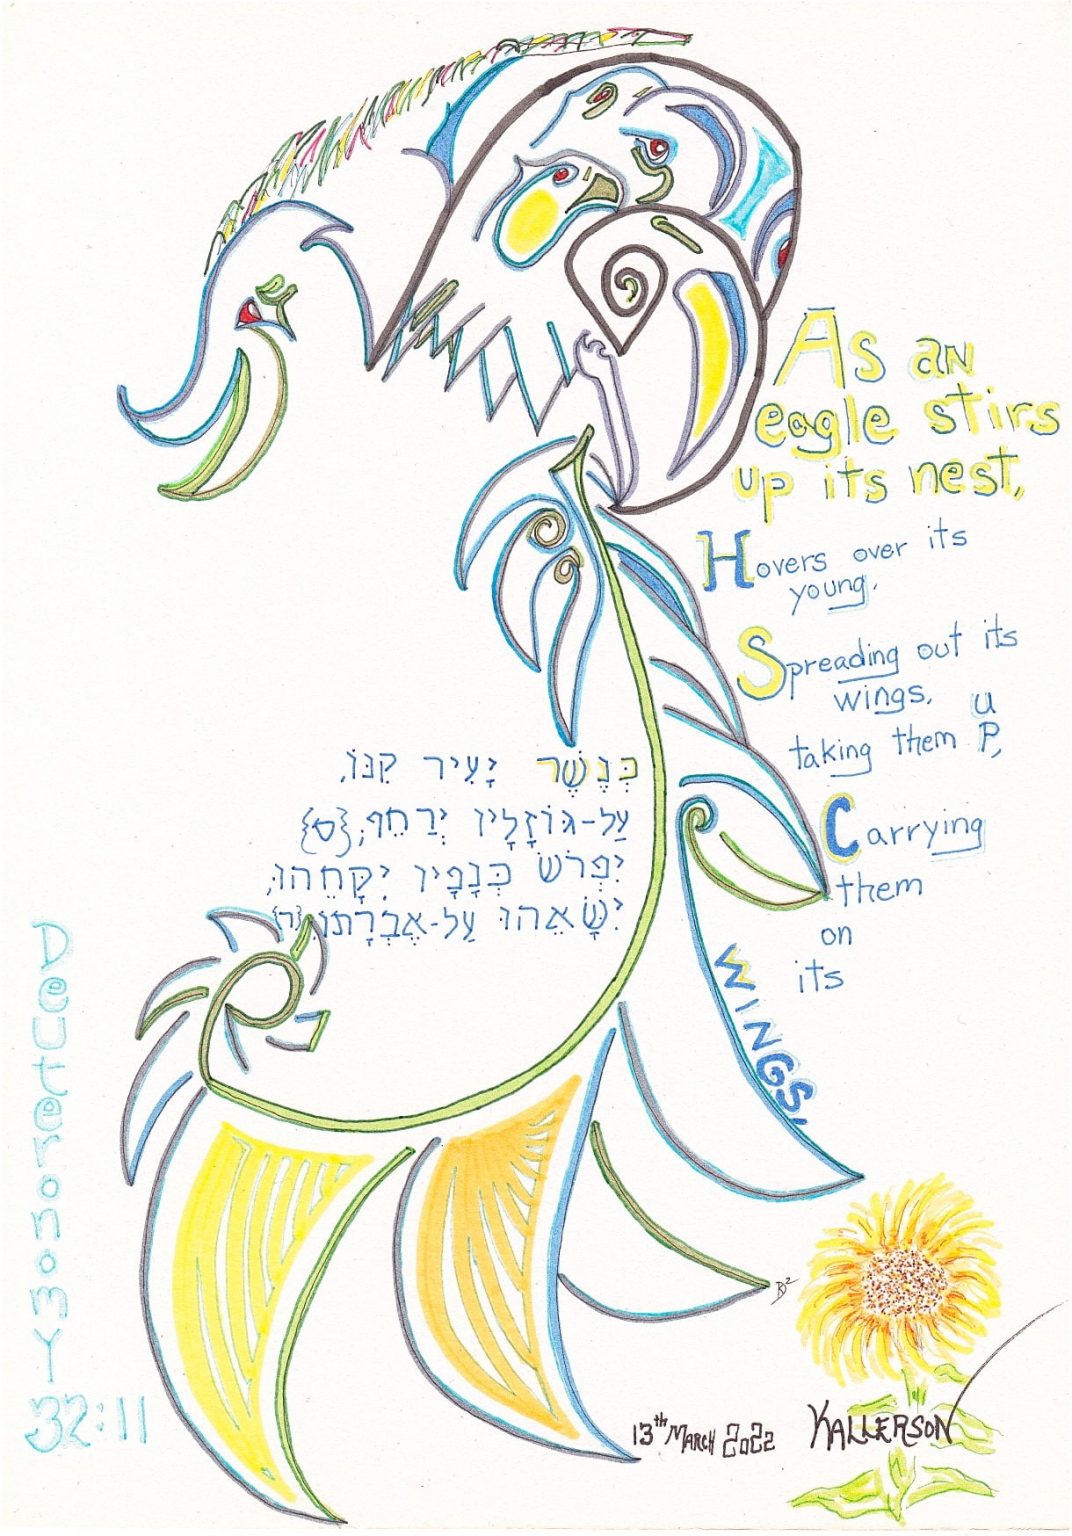 As an
eagle stirs
up its nest,
Hovers over its
young.
Spreading out its
wings,
taking them uP,
Carrying
them
on
its
WINGS.
כְּנֶשֶׁר יָעִיר קִנּוֹ,
עַל-גּוֹזָלָיו יְרַחֵף;{ס}
יִפְרֹשׂ כְּנָפָיו יִקָּחֵהוּ,
יִשָּׂאֵהוּ עַל-אֶבְרָתוֹ{ר}
DeuteronomY
32:11
13th MARCH 2022
KALLERSON